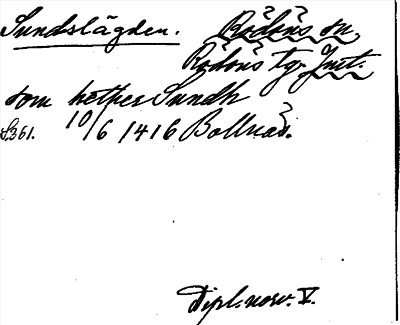 Sundslägden. Rödöns sn,
Rödöns tg. Jmt.
som hether Sundh
S. 361. 10/6 1416 Bollnäs.
Dipl. norv. V.